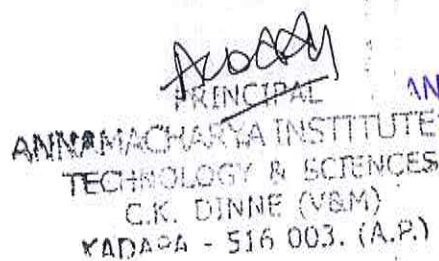 PRINCIPAL AN
ANNAMACHARYA INSTITUTE
TECHNOLOGY & SCIENCES
C.K. DINNE (V&M)
KADAPA - 516 003. (A.P.)